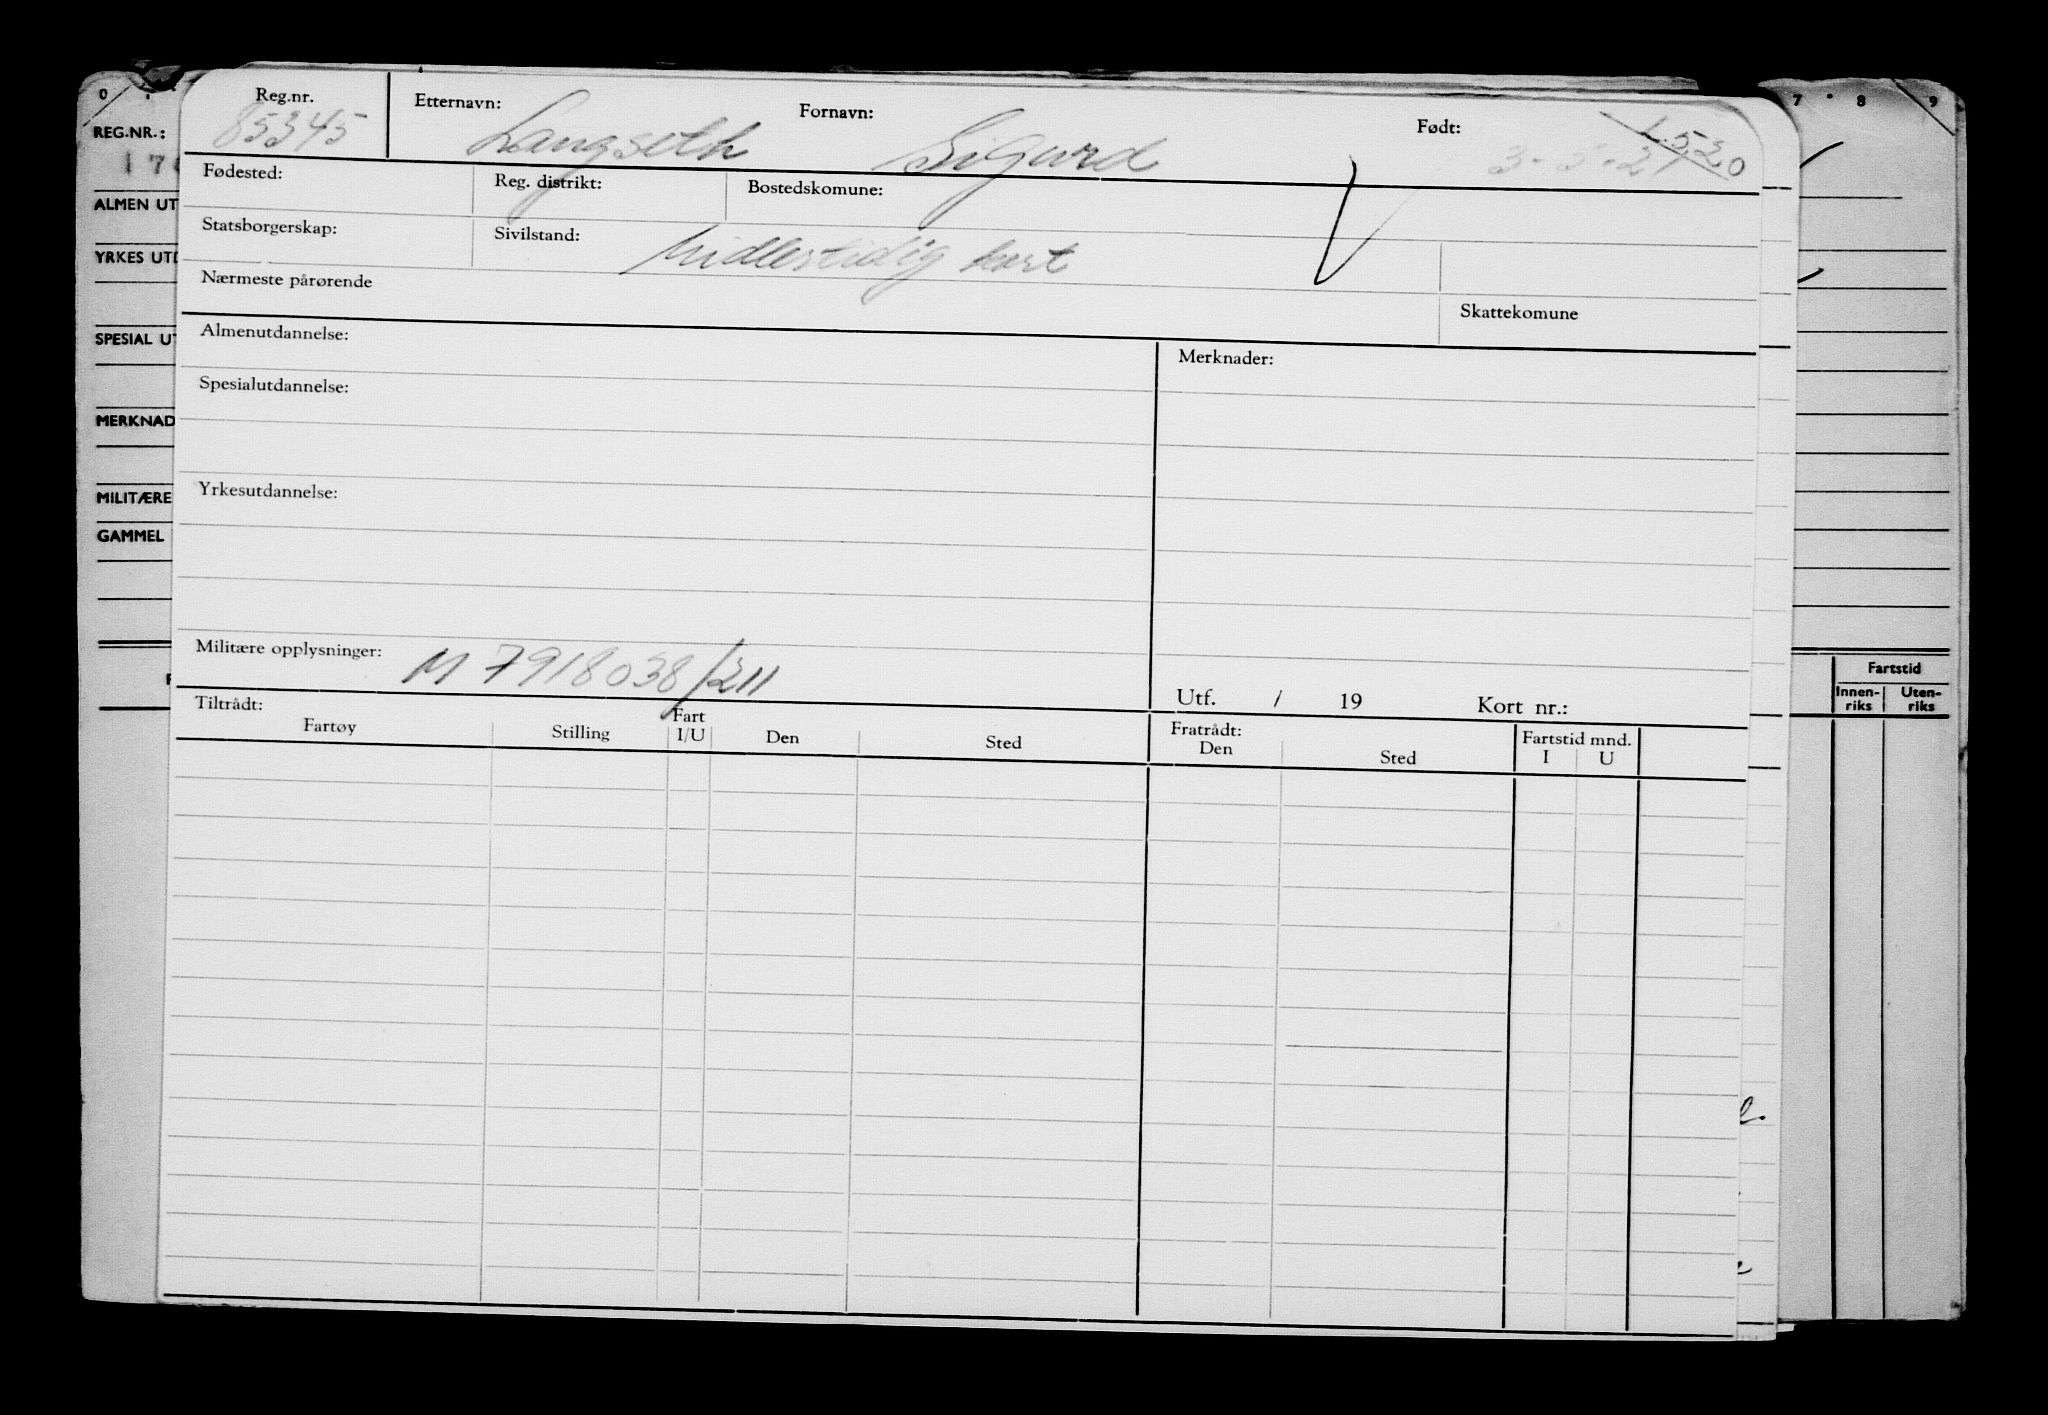 0 7 8 9
REG.NR.:
ALMEN UT
YRKES UTD
SPESIAL UT
MERKNAD
MILITÆRE
GAMMEL
Reg.nr. Etternavn: Fornavn: Født:
85345 Langseth Sigurd 3-5-21
Fødested: Reg. distrikt: Bostedskomune:
Statsborgerskap: Sivilstand: Midlertidig kort
Nærmeste pårørende Skattekomune
Almenutdannelse: Merknader:
Spesialutdannelse:
Yrkesutdannelse:
Militære opplysninger: M 7918038/211
Utf. / 19 Kort nr.:
Tiltrådt: Fratrådt:
Fartøy Stilling Fart I/U Den Sted Den Sted Fartstid mnd. I U
Fartstid
Innen-riks Uten-riks